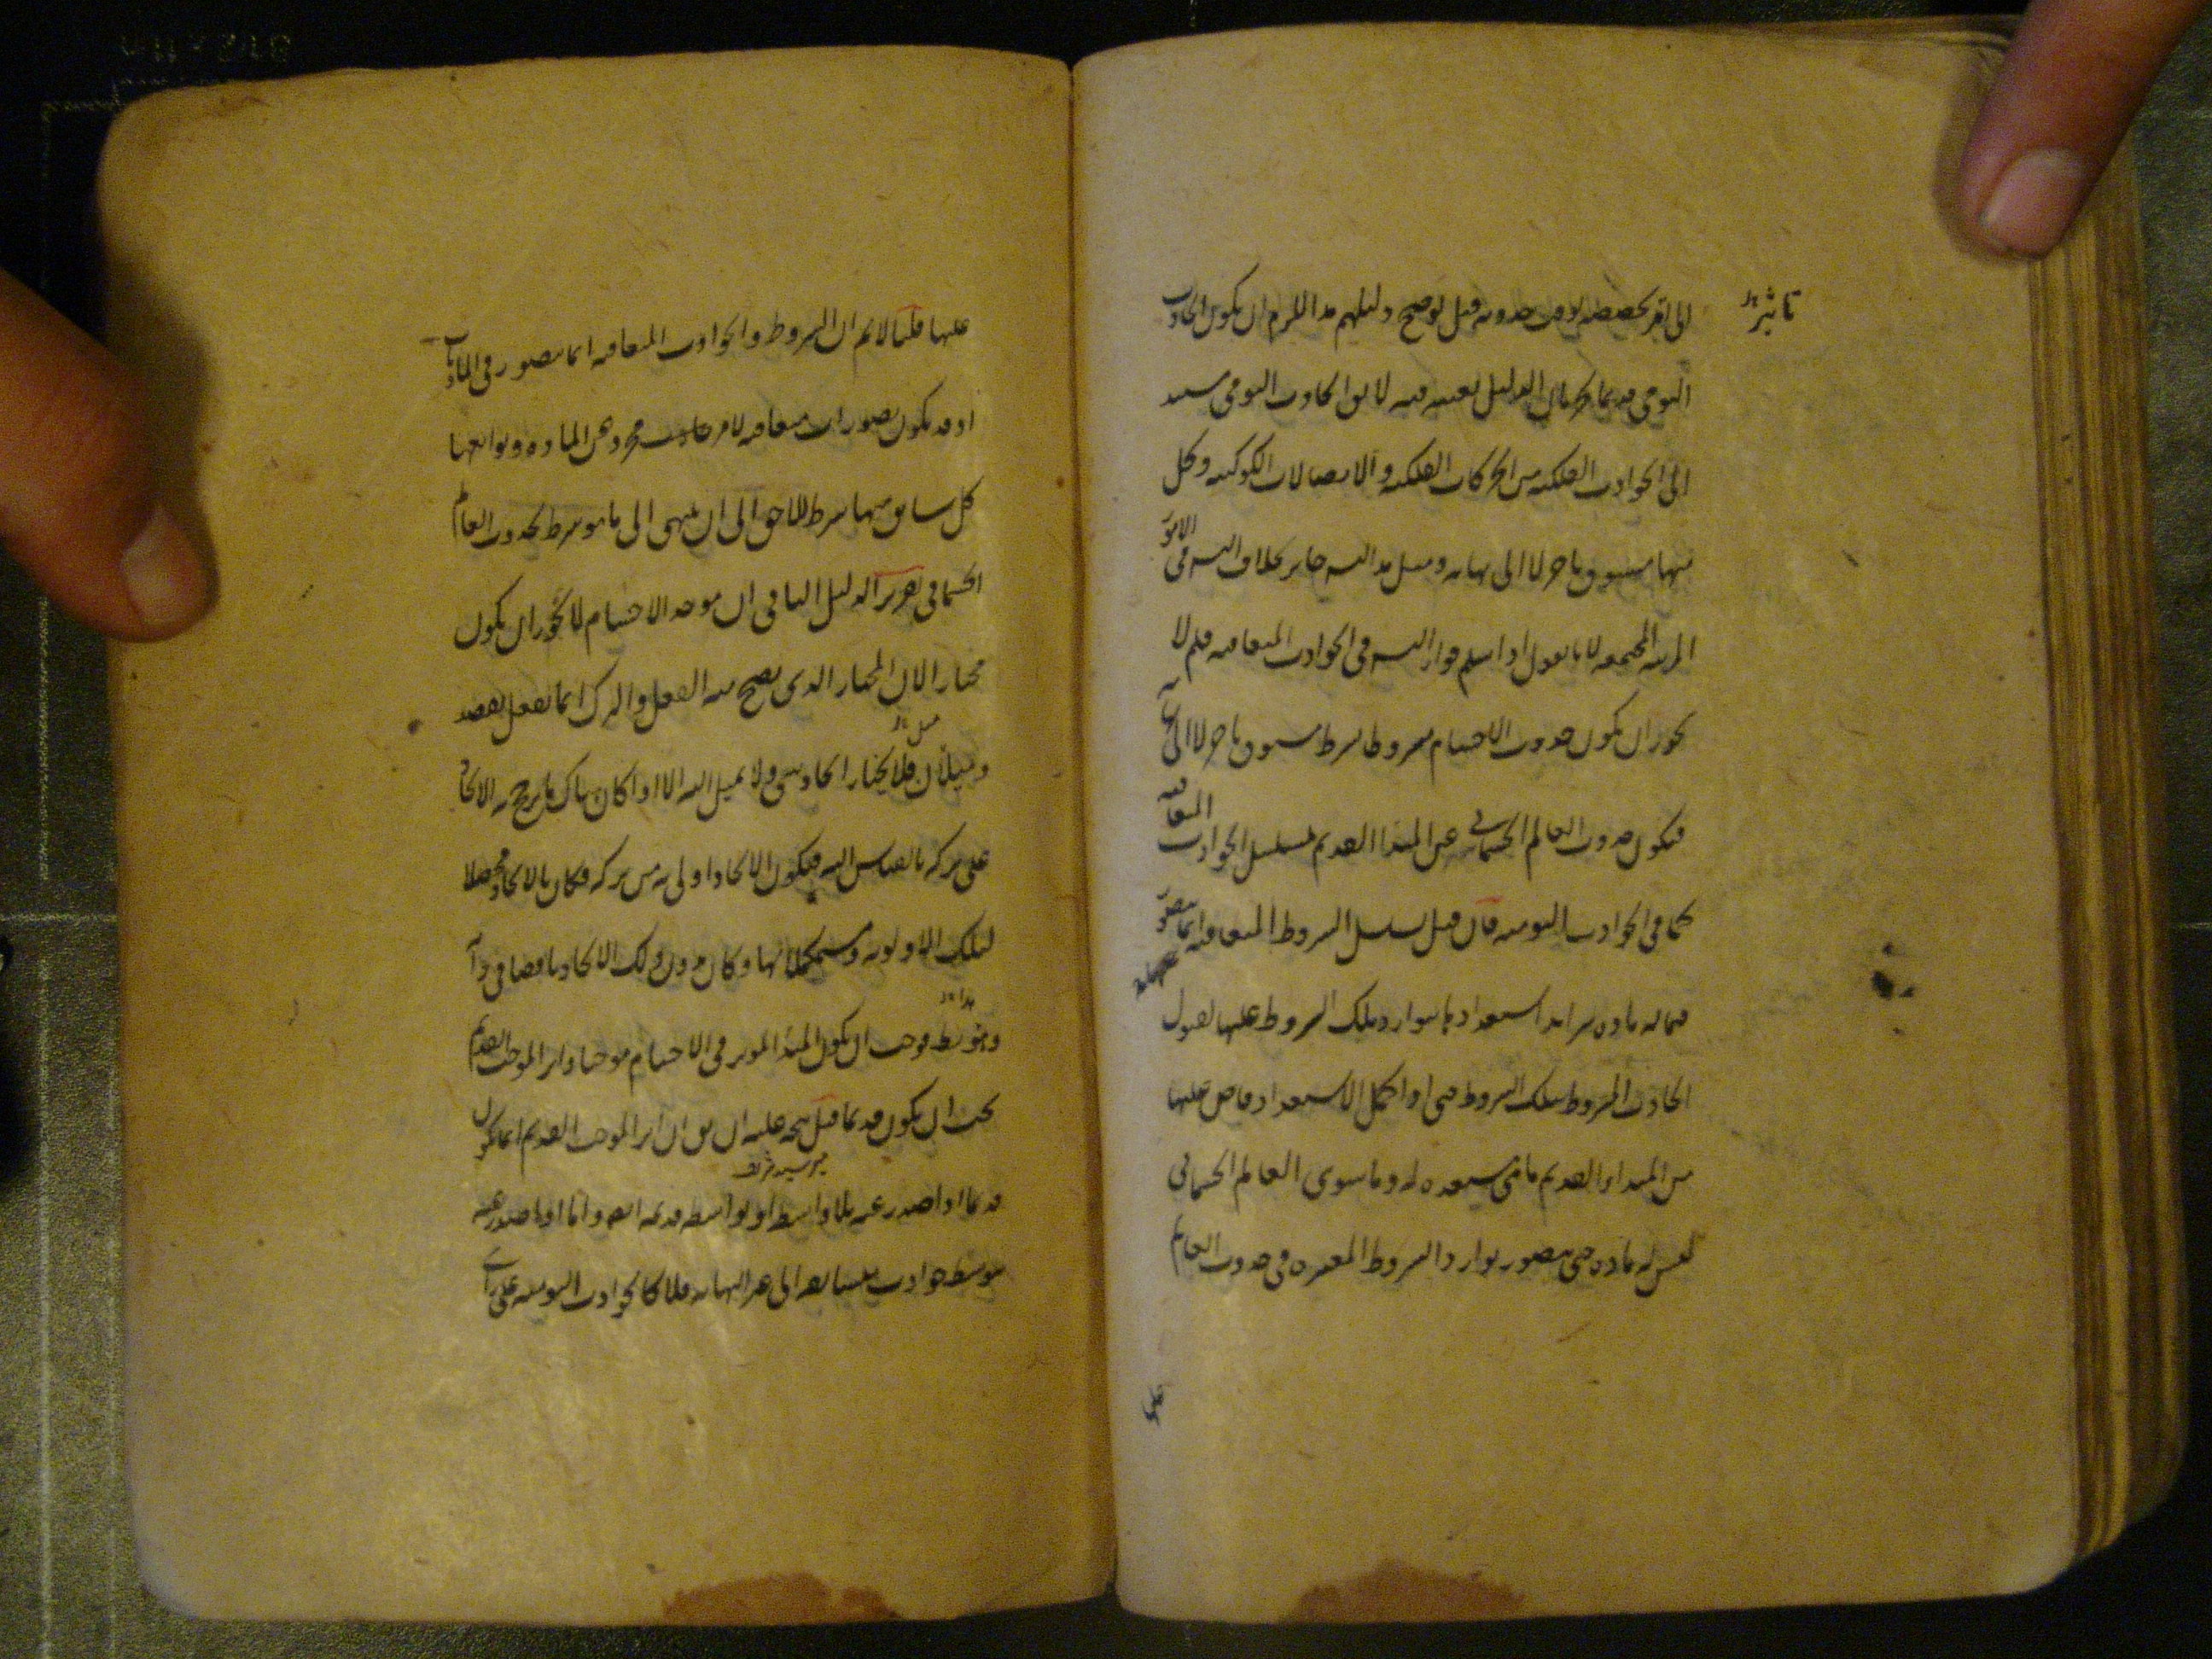 الى آخر تخصصه بوقت حدوثه قيل توضيح دليلهم هذا للزم ان يكون الحادث
اليومي قديما الدليل بعينه فيه لا يق الحادث اليومي مستند
الى الحوادث الفلكية من الحركات الفلكية والاتصالات الكوكبية وكل
منها مسبوق بآخر لا الى نهاية ومثل هذا التس جايز بخلاف التس في الامور
المرتبة المجتمعة لانا نقول اذا سلم جواز التس في الحوادث المتعاقبة فلم لا
يجوز ان يكون حدوث الاجسام مشروطا بشرط مسبوق بآخر لا الى نهاية
فيكون حدوث العالم الجسماني عن المبدا القديم بتسلسل الحوادث المتعاقبة
كما في الحوادث اليومية فان قيل تسلسل الشروط المتعاقبة انما يتصور
فيما له مادة يتزايد استعدادها بتوارد تلك الشروط عليها لقبول
الحادث المشروط بتلك الشروط حتى اذا كمل الاستعداد فاض عليها
من المبداء القديم ما هي مستعدة له وما سوى العالم الجسماني
ليس له مادة حتى يتصور توارد الشروط المعتبرة في حدوث العالم
عليها قلنا لانم ان الشروط والحوادث المتعاقبة انما يتصور في الماديات
اذ قد يكون تصورات متعاقبة لامر مجرد عن المادة وتوابعها
كل سابق منها شرط للاحق الى ان ينتهي الى ما هو شرط لحدوث العالم
الجسماني تقرير الدليل الثاني ان موجد الاجسام لا يجوز ان يكون
مختارا لان المختار الذي يصح منه الفعل والترك انما يفعل بقصد
وميلان فلا يختار ايجاد شي ولا يميل اليه الا اذا كان هناك ما يرجح به الايجاد
على تركه بالقياس اليه فيكون الايجاد اولى به من تركه فكان بالايجاد محصلا
لتلك الاولوية ومستكملا بها وكان بدون ذلك الايجاد ناقصا في ذاته
فوجب ان يكون المبدا الموثر في الاجسام موجبا واثر الموجب القديم
يجب ان يكون قديما قيل يتجه عليه ان يق ان اثر الموجب القديم انما يكون
مير سيد شريف
قديما اذا صدر عنه بلا واسطة او بواسطة قديمة ايضا واما اذا صدر عنه
بتوسط حوادث متسابقة الى غير النهاية فلا كالحوادث اليومية على راي